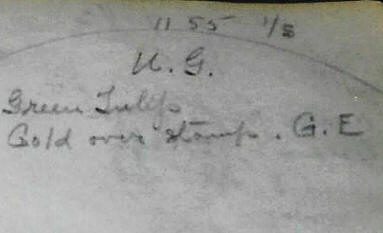 11 55 1/8
U. G.
Green Tulips
Gold over stamp. G. E